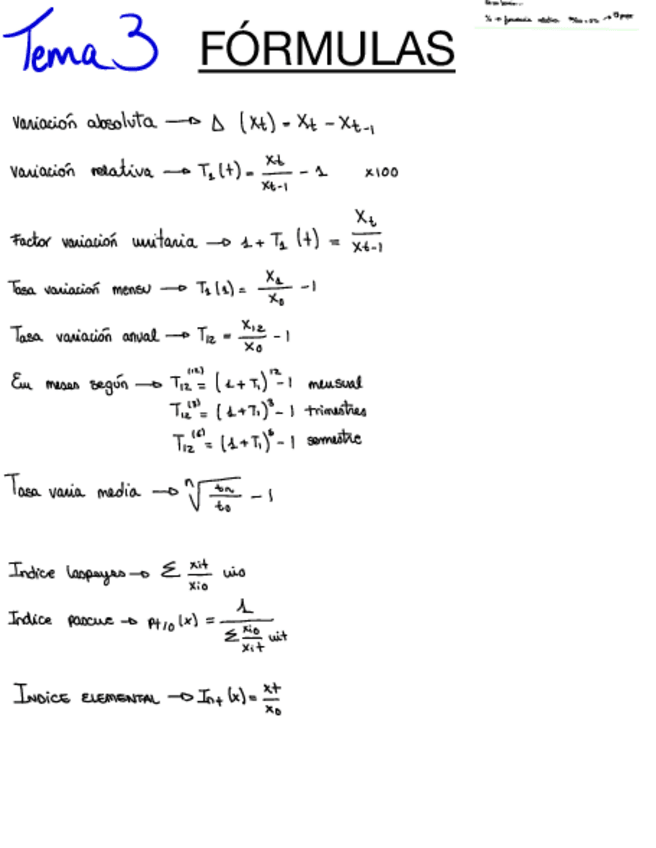 Tema 3 FÓRMULAS
Variación absoluta → Δ (Xt) = Xt - Xt-1
Variación relativa → T1(t) = Xt/Xt-1 - 1 x100
Factor variación unitaria → 1 + T1 (t) = Xt/Xt-1
Tasa variación mensu → T1(1) = X1/X0 - 1
Tasa variación anual → T12 = X12/X0 - 1
En meses según → T12^(12) = (1+T1)^12 - 1 mensual
T12^(3) = (1+T1)^3 - 1 trimestres
T12^(6) = (1+T1)^6 - 1 semestre
Tasa varia media → ⁿ√(tn/t0) - 1
Indice laspeyres → Σ xit/xio wio
Indice pascue → Pt/0(x) = 1/(Σ xio/xit wit)
INDICE ELEMENTAL → Int(x) = xt/x0